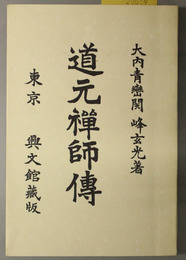 大内青巒閲 峰玄光著
道元禪師傳
東京 興文館藏版